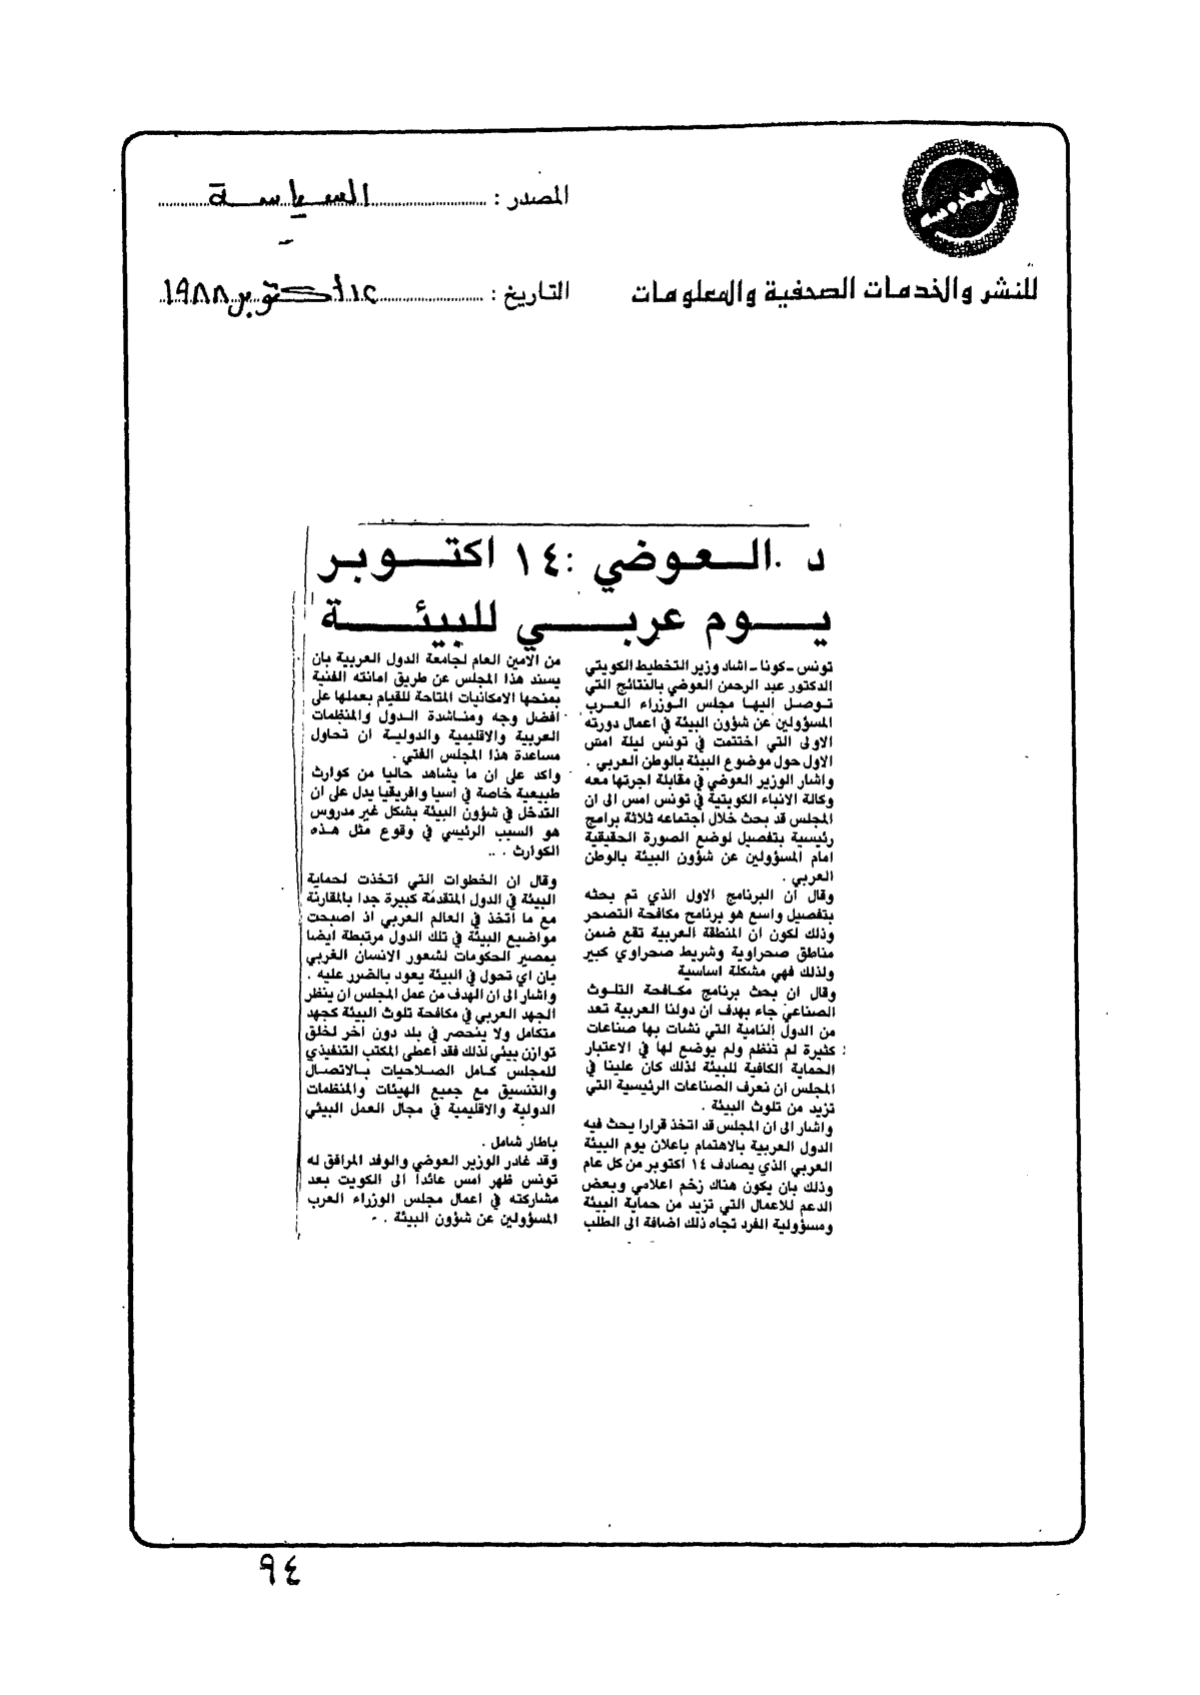 المصدر : السياسة
للنشر والخدمات الصحفية والمعلومات
التاريخ : ١٢ اكتوبر ١٩٨٨
د . العوضي : ١٤ اكتوبر
يوم عربي للبيئة
تونس - كونا - اشاد وزير التخطيط الكويتي
الدكتور عبد الرحمن العوضي بالنتائج التي
توصل إليها مجلس الوزراء العرب
المسؤولين عن شؤون البيئة في اعمال دورته
الاولى التي اختتمت في تونس ليلة امس
الاول حول موضوع البيئة بالوطن العربي .
واشار الوزير العوضي في مقابلة اجرتها معه
وكالة الانباء الكويتية في تونس امس الى ان
المجلس قد بحث خلال اجتماعه ثلاثة برامج
رئيسية بتفصيل لوضع الصورة الحقيقية
امام المسؤولين عن شؤون البيئة بالوطن
العربي .
وقال ان البرنامج الاول الذي تم بحثه
بتفصيل واسع هو برنامج مكافحة التصحر
وذلك لكون ان المنطقة العربية تقع ضمن
مناطق صحراوية وشريط صحراوي كبير
ولذلك فهي مشكلة اساسية
وقال ان بحث برنامج مكافحة التلوث
الصناعي جاء بهدف ان دولنا العربية تعد
من الدول النامية التي نشات بها صناعات
كثيرة لم تنظم ولم يوضع لها في الاعتبار
الحماية الكافية للبيئة لذلك كان علينا في
المجلس ان نعرف الصناعات الرئيسية التي
تزيد من تلوث البيئة .
واشار الى ان المجلس قد اتخذ قرارا يحث فيه
الدول العربية بالاهتمام باعلان يوم البيئة
العربي الذي يصادف ١٤ اكتوبر من كل عام
وذلك بان يكون هناك زخم اعلامي وبعض
الدعم للاعمال التي تزيد من حماية البيئة
ومسؤولية الفرد تجاه ذلك اضافة الى الطلب
من الامين العام لجامعة الدول العربية بان
يسند هذا المجلس عن طريق امانته الفنية
بمنحها الامكانيات المتاحة للقيام بعملها على
افضل وجه ومناشدة الدول والمنظمات
العربية والاقليمية والدولية ان تحاول
مساعدة هذا المجلس الفتي .
واكد على ان ما يشاهد حاليا من كوارث
طبيعية خاصة في اسيا وافريقيا يدل على ان
التدخل في شؤون البيئة بشكل غير مدروس
هو السبب الرئيسي في وقوع مثل هذه
الكوارث . ..
وقال ان الخطوات التي اتخذت لحماية
البيئة في الدول المتقدمة كبيرة جدا بالمقارنة
مع ما أتخذ في العالم العربي اذ اصبحت
مواضيع البيئة في تلك الدول مرتبطة ايضا
بمصير الحكومات لشعور الانسان الغربي
بان اي تحول في البيئة يعود بالضرر عليه .
واشار الى ان الهدف من عمل المجلس ان ينظر
الجهد العربي في مكافحة تلوث البيئة كجهد
متكامل ولا ينحصر في بلد دون آخر لخلق
توازن بيئي لذلك فقد أعطى المكتب التنفيذي
للمجلس كامل الصلاحيات بالاتصال
والتنسيق مع جميع الهيئات والمنظمات
الدولية والاقليمية في مجال العمل البيئي
باطار شامل .
وقد غادر الوزير العوضي والوفد المرافق له
تونس ظهر امس عائداً الى الكويت بعد
مشاركته في اعمال مجلس الوزراء العرب
المسؤولين عن شؤون البيئة . -
٩٤